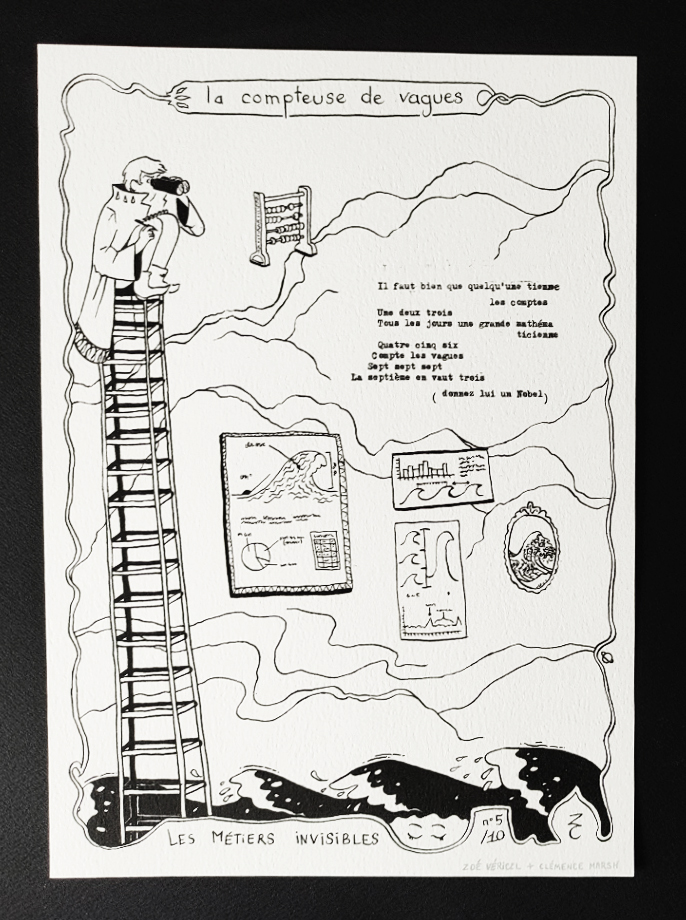 la compteuse de vagues
Il faut bien que quelqu'une tienne
les comptes
Une deux trois
Tous les jours une grande mathéma
ticienne
Quatre cinq six
Compte les vagues
Sept sept sept
La septième en vaut trois
( donnez lui un Nobel)
LES MÉTIERS INVISIBLES
n°5
/10
ZOÉ VÉRICEL + CLÉMENCE MARSH